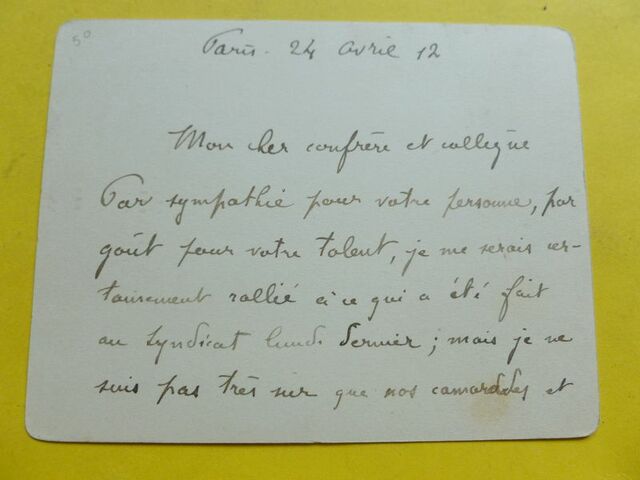 50
Paris. 24 avril 12
Mon cher confrère et collègue
Par sympathie pour votre personne, par
goût pour votre talent, je me serais cer-
tainement rallié à ce qui a été fait
au Syndicat lundi dernier ; mais je ne
suis pas très sur que nos camarades et